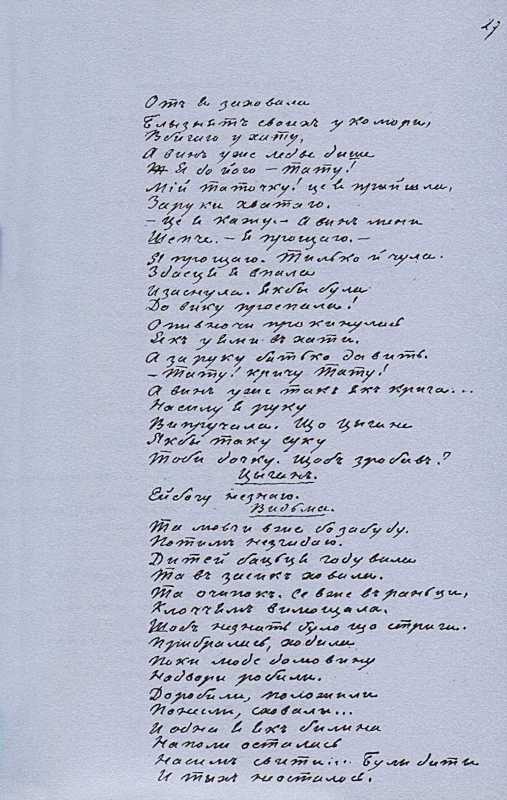 27
Отъ я заховала
Близнятъ своихъ у комори,
Вбигаю у хату,
А винъ уже ледве дыше
Я до його — Тату!
Мій таточку! це я прыйшла,
За руки хватаю.
— Це я кажу. — А винъ мени
Шепче. — Я прощаю. —
Я прощаю. Тилько й чула.
Здаеця я впала
И заснула. Якбы була
До вику проспала!
О пивночи прокинулась
Якъ у ями въ хати.
А за руку батько давить.
— Тату! кричу Тату!
А винъ уже такъ якъ крига...
Насилу я руку
Випручала. Що Цыгане
Якбы таку суку
Тоби дочку. Щобъ зробивъ?
Цыганъ.
Ейбогу незнаю.
Видьма.
Та мовчи вже бо забуду.
Потимъ незгадаю.
Дитей бацьця годувала
Та въ засикъ ховала.
Та очипокъ. Се вже враньци,
Клоччямъ вимощала.
Щобъ незнать було що стрига.
Прибралась, ходила
Поки люде домовину
Надвори робили.
Доробили, положили
Понесли, сховалы...
И одна я якъ билина
Наполи осталась
На симъ свити... Були дити
И тыхъ неосталось.